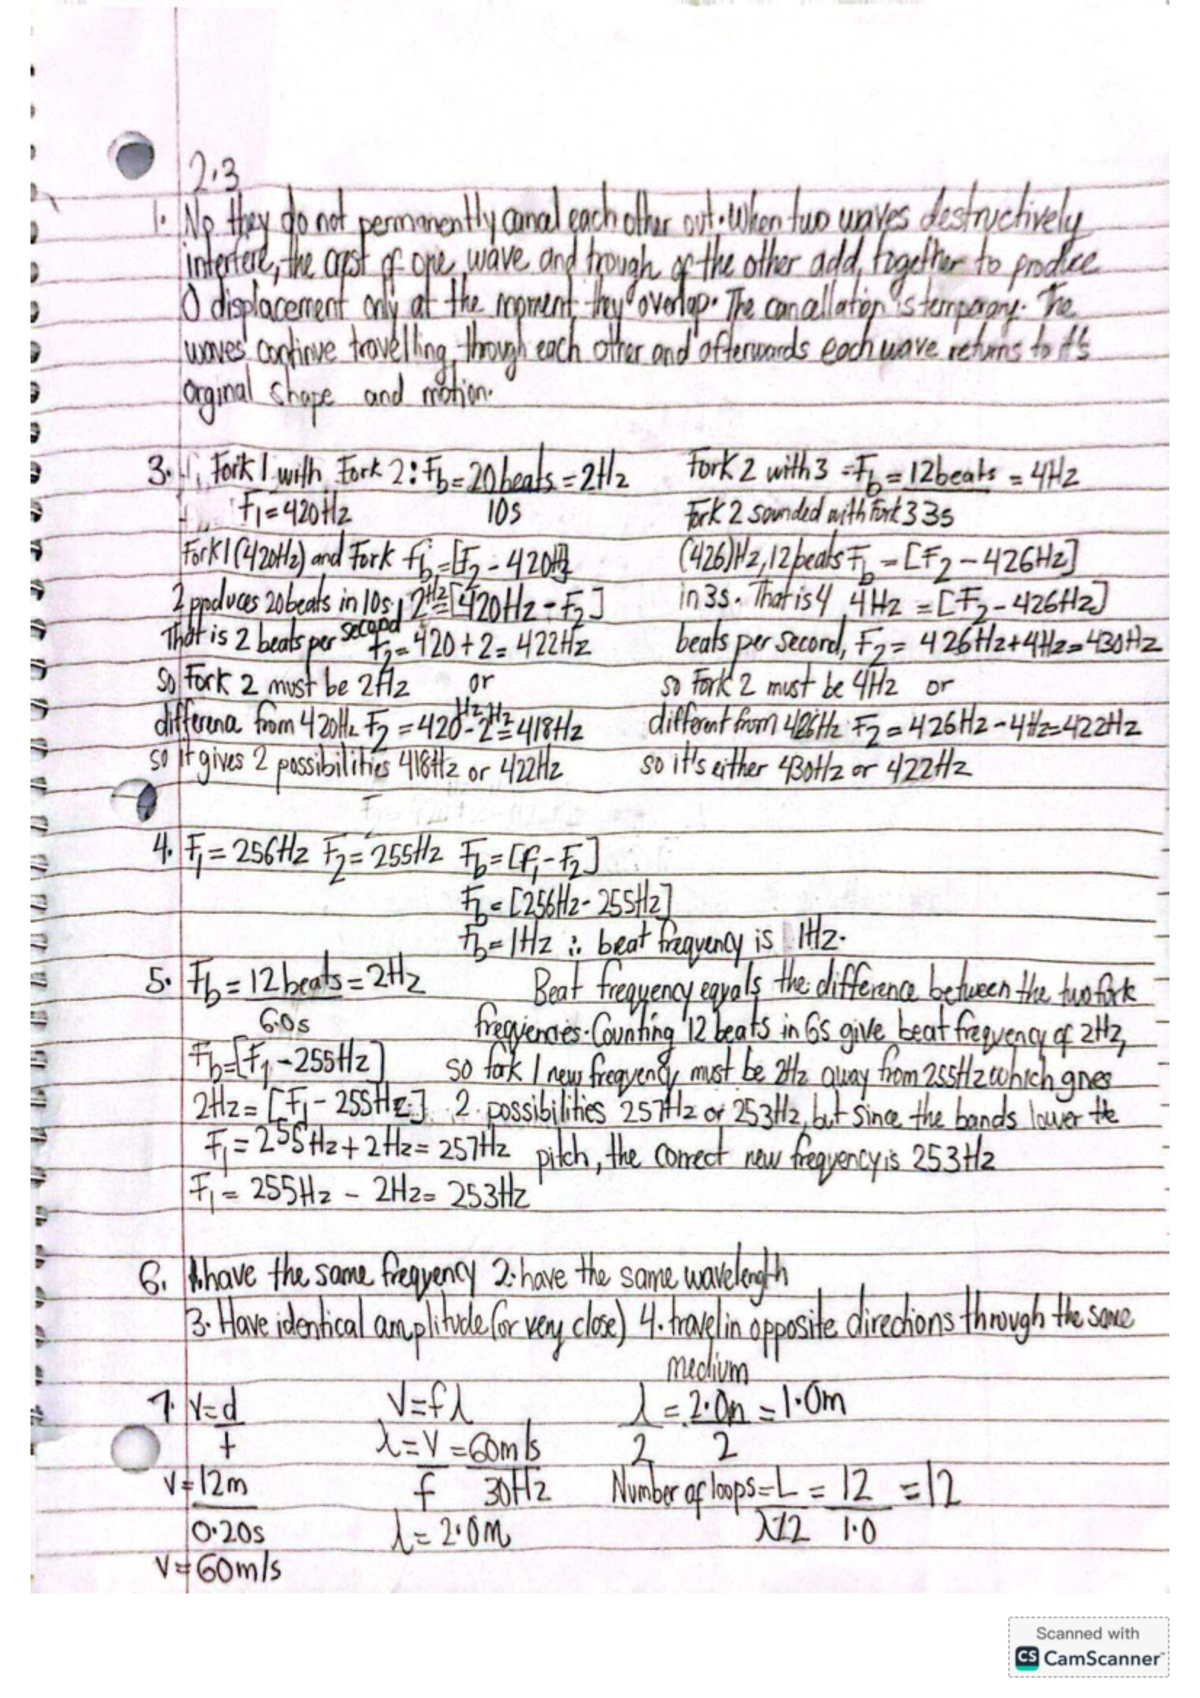 2.3
1. No they do not permanently cancal each other out. When two waves destructively
interfere, the crest of one wave and trough of the other add together to produce
0 displacement only at the moment they overlap. The cancallation is temporary. The
waves continue travelling through each other and afterwards each wave returns to it's
orginal shape and motion.
3. Fork 1 with Fork 2: Fb = 20 beats = 2Hz
10s
F1 = 420Hz
Fork 1 (420Hz) and Fork fb = [F2 - 420Hz]
2 produces 20 beats in 10s, 2Hz = [420Hz - F2]
That is 2 beats per second F2 = 420 + 2 = 422Hz
so Fork 2 must be 2Hz or
differena from 420Hz F2 = 420Hz - 2Hz = 418Hz
so it gives 2 possibilities 418Hz or 422Hz
Fork 2 with 3 = Fb = 12 beats = 4Hz
Fork 2 sounded with Fork 3 3s
(426)Hz, 12 beats Fb = [F2 - 426Hz]
in 3s. That is 4 4Hz = [F2 - 426Hz]
beats per second, F2 = 426Hz + 4Hz = 430Hz
so Fork 2 must be 4Hz or
different from 426Hz F2 = 426Hz - 4Hz = 422Hz
so it's either 430Hz or 422Hz
4. F1 = 256Hz F2 = 255Hz Fb = [f1 - F2]
Fb = [256Hz - 255Hz]
Fb = 1Hz ∴ beat frequency is 1Hz.
5. Fb = 12 beats = 2Hz
6.0s
Fb = [F1 - 255Hz]
2Hz = [F1 - 255Hz]
F1 = 255Hz + 2Hz = 257Hz
F1 = 255Hz - 2Hz = 253Hz
Beat frequency equals the difference between the two fork
frequencies. Counting 12 beats in 6s give beat frequency of 2Hz,
so fork 1 new frequency must be 2Hz away from 255Hz which gives
2 possibilities 257Hz or 253Hz, but since the bands lower the
pitch, the correct new frequency is 253Hz
6. 1. have the same frequency 2. have the same wavelength
3. Have identical amplitude (or very close) 4. travel in opposite directions through the same
medium
7. V = d
t
V = 12m
0.20s
V = 60m/s
V = fλ
λ = V = 60m/s
f 30Hz
λ = 2.0m
λ = 2.0m = 1.0m
2 2
Number of loops = L = 12 = 12
λ/2 1.0
Scanned with
CS CamScanner